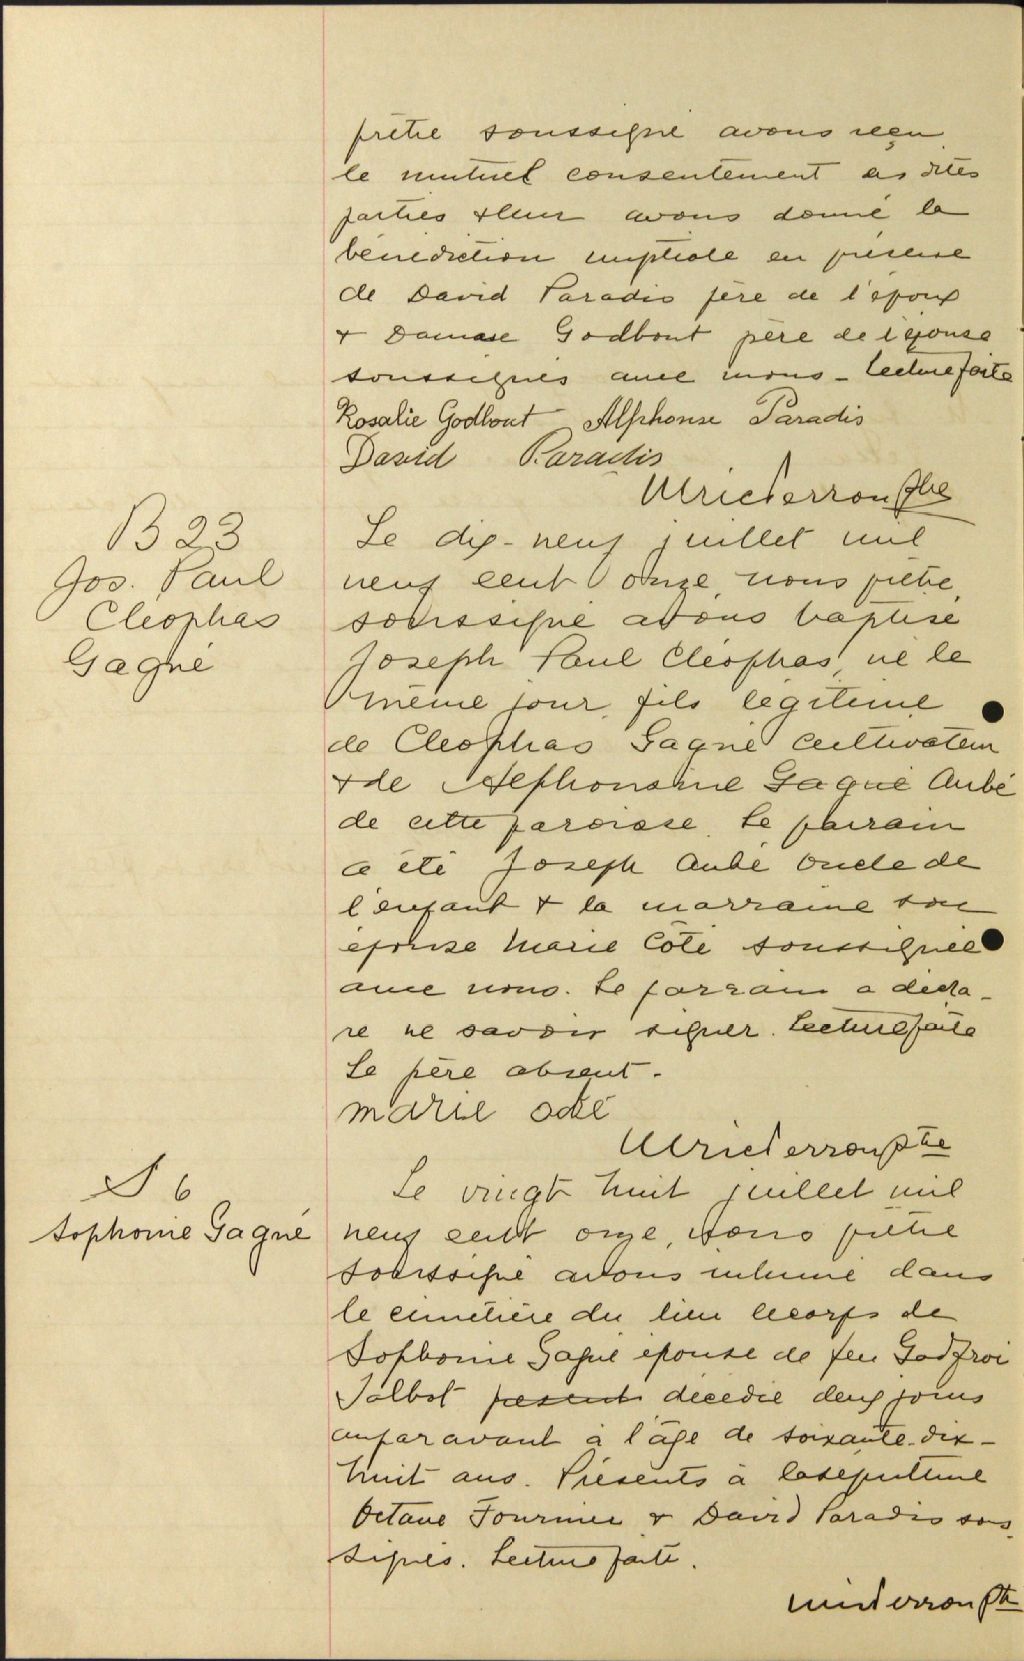 prêtre soussigné avons reçu
le mutuel consentement des dites
parties & leur avons donné la
bénédiction nuptiale en présence
de David Paradis père de l'époux
& Damase Godbout père de l'épouse
soussignés avec nous - Lecture faite
Rosalie Godbout Alphonse Paradis
David Paradis
Ulric Perron Ptre
B 23
Jos. Paul
Cléophas
Gagné
Le dix-neuf juillet mil
neuf cent onze, nous prêtre
soussigné avons baptisé
Joseph Paul Cléophas, né le
même jour, fils légitime
de Cléophas Gagné cultivateur
& de Alphonsine Gagné Aubé
de cette paroisse. Le parrain
a été Joseph Aubé oncle de
l'enfant & la marraine son
épouse Marie Côté soussignée
avec nous. Le parrain a décla-
ré ne savoir signer. Lecture faite
Le père absent.
Marie Coté
Ulric Perron Ptre
S 6
Sophonie Gagné
Le vingt huit juillet mil
neuf cent onze, nous prêtre
soussigné avons inhumé dans
le cimetière du lieu le corps de
Sophonie Gagné épouse de feu Godfroi
Talbot présent décédée deux jours
auparavant à l'âge de soixante-dix-
huit ans. Présents à la sépulture
Octave Fournier & David Paradis sous-
signés. Lecture faite.
Ulric Perron Ptre